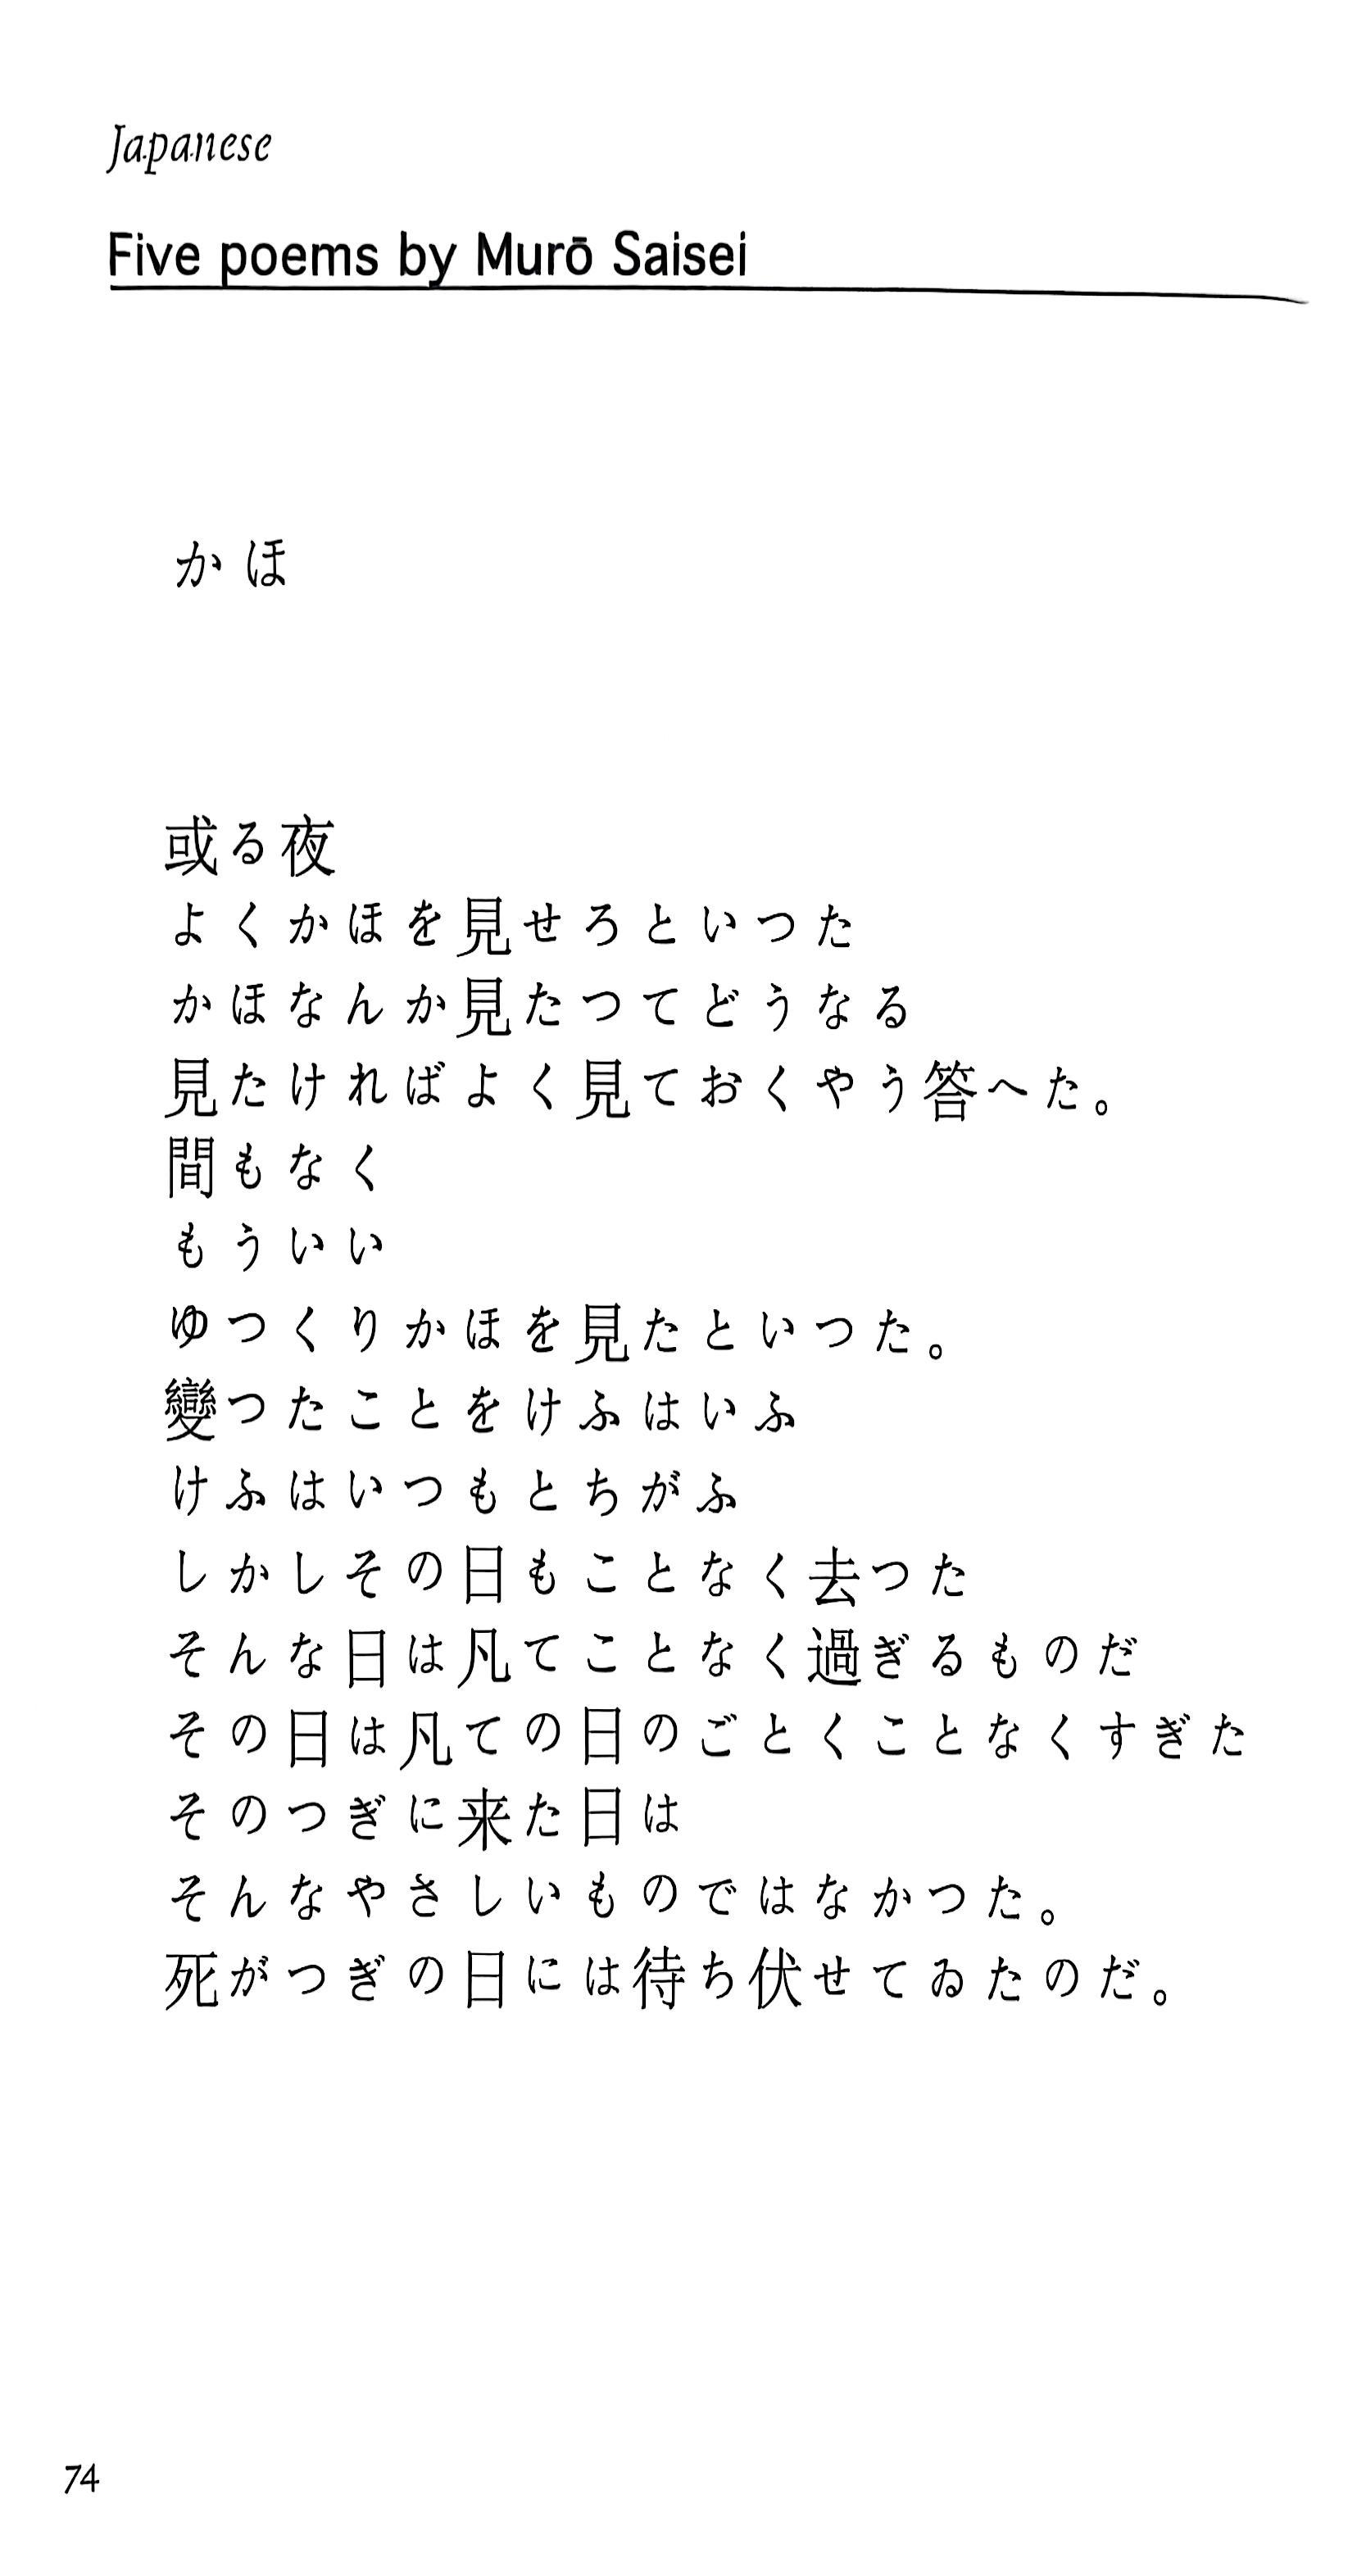 Japanese
Five poems by Murō Saisei
かほ
或る夜
よくかほを見せろといつた
かほなんか見たつてどうなる
見たければよく見ておくやう答へた。
間もなく
もういい
ゆつくりかほを見たといつた。
變つたことをけふはいふ
けふはいつもとちがふ
しかしその日もことなく去つた
そんな日は凡てことなく過ぎるものだ
その日は凡ての日のごとくことなくすぎた
そのつぎに来た日は
そんなやさしいものではなかつた。
死がつぎの日には待ち伏せてゐたのだ。
74